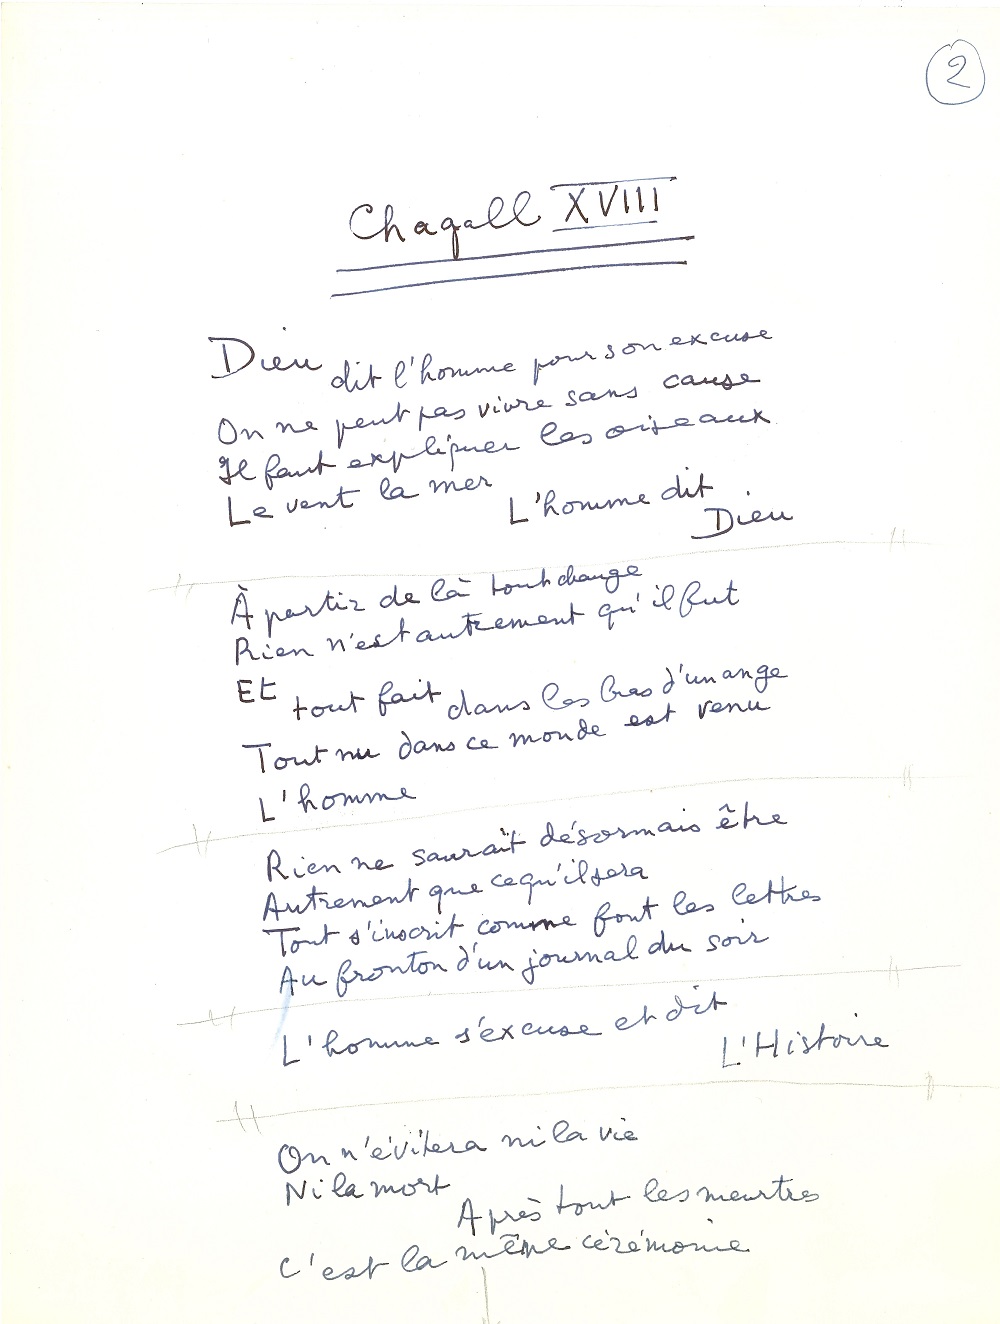 2
Chagall XVIII
Dieu dit l'homme pour son excuse
On ne peut pas vivre sans cause
Il faut expliquer les oiseaux
Le vent la mer
L'homme dit
Dieu
À partir de là tout change
Rien n'est autrement qu'il fut
Et tout fait dans les bras d'un ange
Tout nu dans ce monde est venu
L'homme
Rien ne saurait désormais être
Autrement que ce qu'il sera
Tout s'inscrit comme font les lettres
Au fronton d'un journal du soir
L'homme s'excuse et dit
L'Histoire
On n'évitera ni la vie
Ni la mort
Après tout les meurtres
C'est la même cérémonie